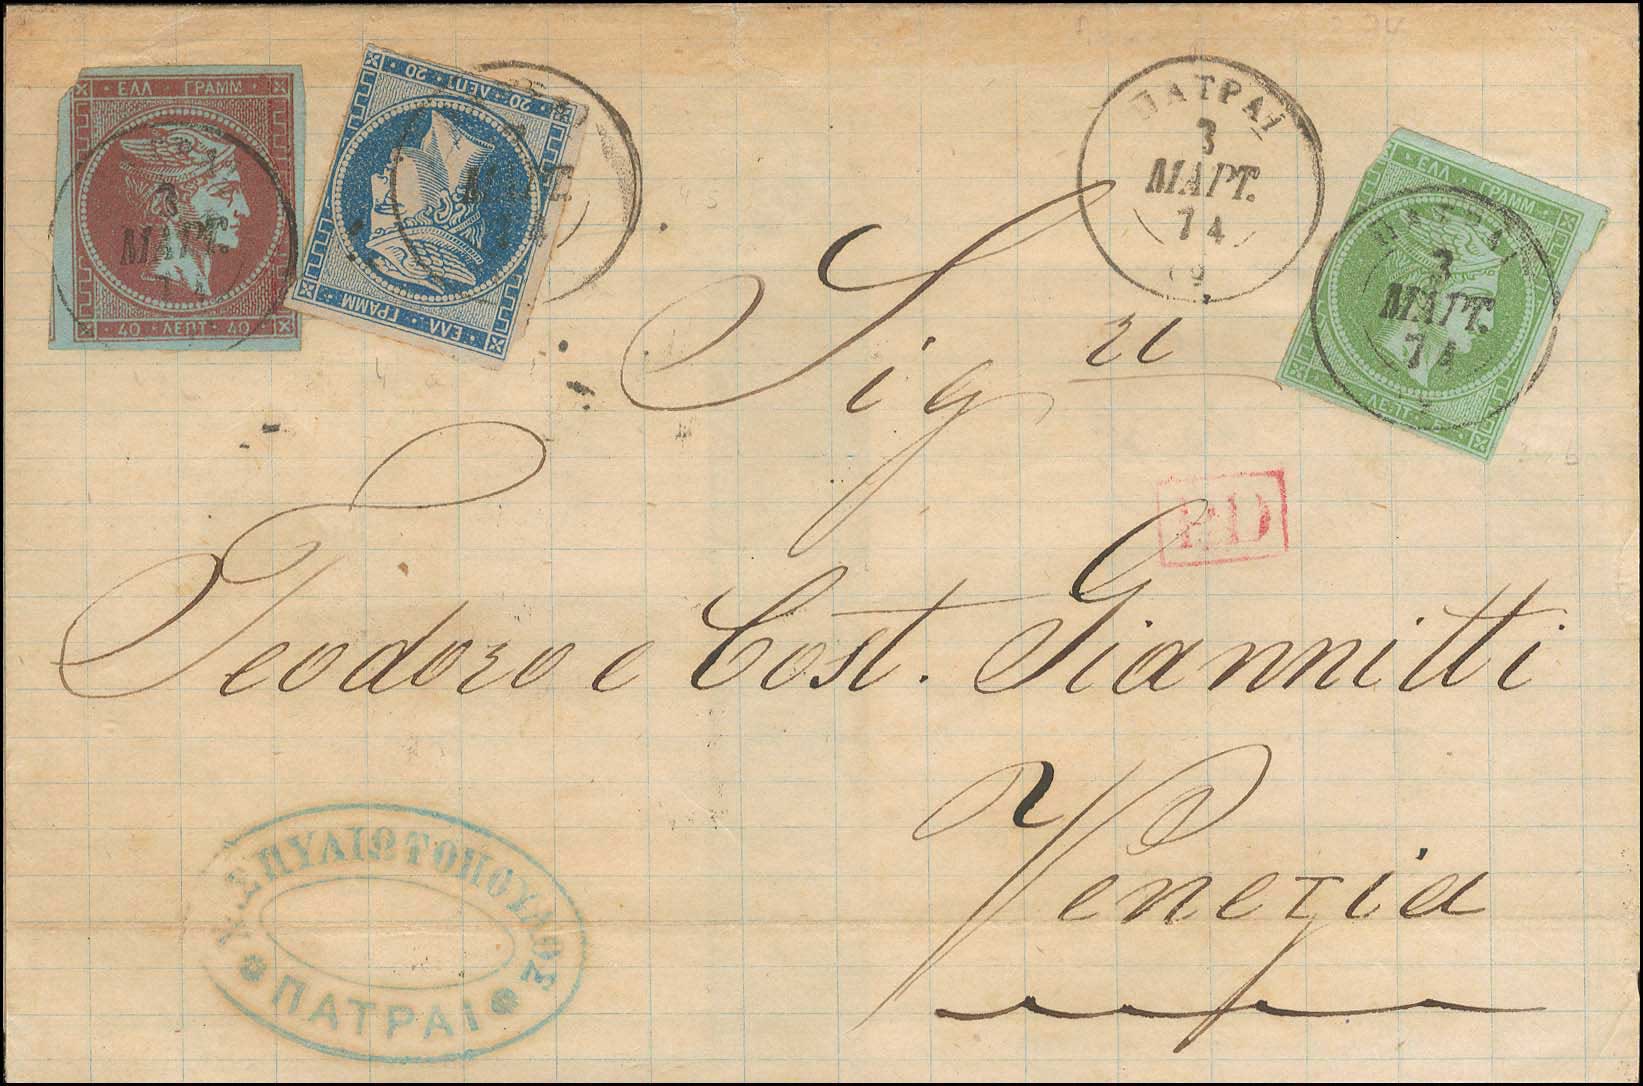 ΕΛΛ ΓΡΑΜΜ
40 ΛΕΠΤ 40
20 ΛΕΠΤ 20
ΕΛΛ ΓΡΑΜΜ
3
ΜΑΡΤ.
ΠΑΤΡΑΙ
3
ΜΑΡΤ.
74
ΕΛΛ ΓΡΑΜΜ
ΛΕΠΤ
ΠΑΤΡΑΙ
3
ΜΑΡΤ.
74
Sigri
P.D
Teodoro e Cost. Giannitti
Venezia
ΣΠΥΛΙΩΤΟΠΟΥΛΟΣ
ΠΑΤΡΑΙ